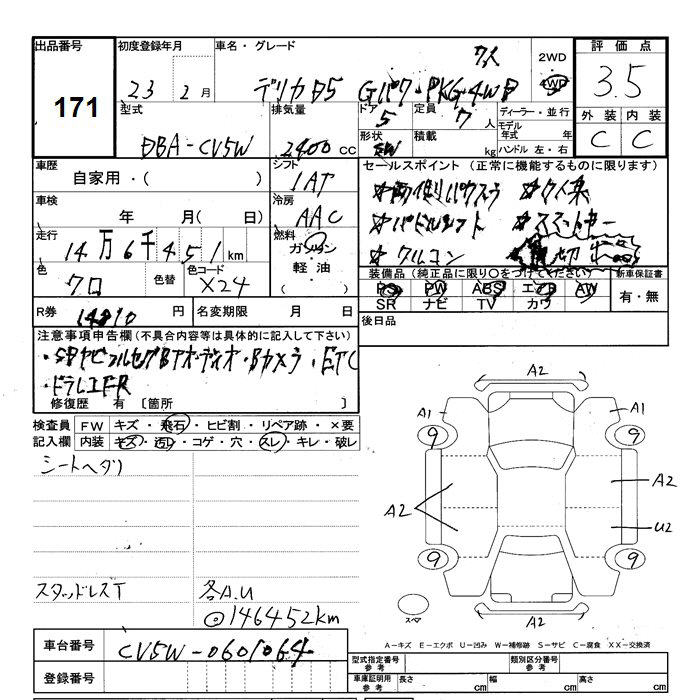 出品番号 初度登録年月 車名・グレード 評価点
171
23 2月 デリカD5 Gパワ・PKG・4WD 7人
2WD 4WD
3.5
型式 排気量 ドア 定員 ディーラー・並行 外装 内装
DBA-CV5W 2400cc 5 7人 モデル年式 年 C C
形状 積載 kg ハンドル 左・右
車歴 シフト セールスポイント(正常に機能するものに限ります)
自家用・( ) 1AT
☆両側パワスラ ☆7人乗
車検 冷房
年 月( 日) AAC
☆パドルシフト ☆スマートキー
走行 燃料
14万6千451km ガソリン
☆クルコン
軽油・( )
色 色替 色コード 装備品(純正品に限り○をつけてください) 新車保証書
クロ X24
PS PW ABS エアB AW 有・無
SR ナビ TV カワ
R券 14810円 名変期限 月 日 後日品
注意事項申告欄(不具合内容等は具体的に記入して下さい)
・Bカメラ・ETC
・ドラレコFR
修復歴 有 〔箇所 〕
検査員 FW キズ・飛石・ヒビ割・リペア跡・×要
記入欄 内装 キズ・汚レ・コゲ・穴・スレ・キレ・破レ
シートヘタリ
スタッドレスT 各A.U
◎146452km
A2
A1 A1
9 9
A2 A2
U2
9 9
スペア A2
A-キズ E-エクボ U-凹み W-補修跡 S-サビ C-腐食 XX-交換済
車台番号 CV5W-0601064
登録番号
型式指定番号 参考 類別区分番号 参考
車庫証明用 参考 長さ cm 幅 cm 高さ cm